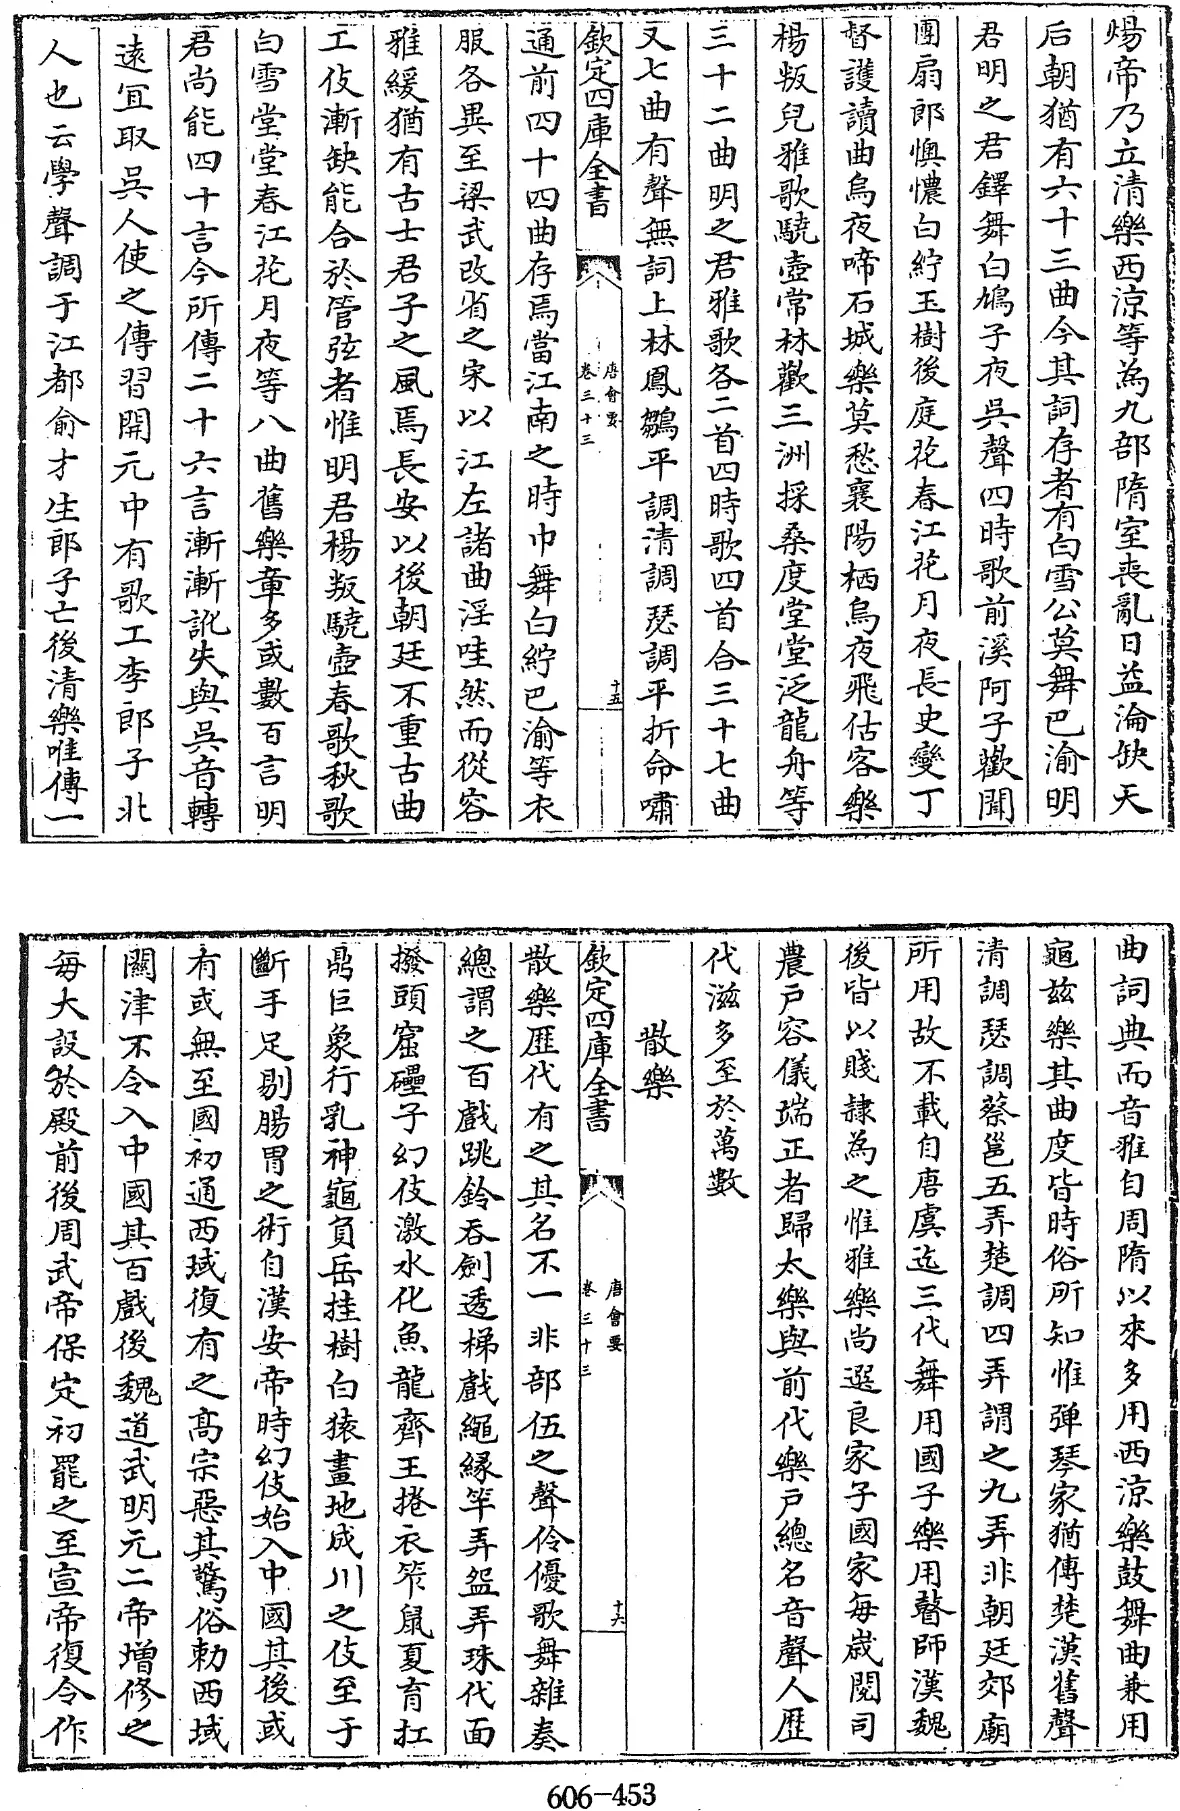 煬帝乃立清樂西涼等為九部隋室喪亂日益淪缺天
后朝猶有六十三曲今其詞存者有白雪公莫舞巴渝明
君明之君鐸舞白鳩子夜吳聲四時歌前溪阿子歡聞
團扇郎懊憹白紵玉樹後庭花春江花月夜長史變丁
督護讀曲烏夜啼石城樂莫愁襄陽栖烏夜飛估客樂
楊叛兒雅歌驍壺常林歡三洲採桑度堂堂泛龍舟等
三十二曲明之君雅歌各二首四時歌四首合三十七曲
又七曲有聲無詞上林鳳鶵平調清調瑟調平折命嘯
欽定四庫全書 唐會要 卷三十三 十五
通前四十四曲存焉當江南之時巾舞白紵巴渝等衣
服各異至梁武改省之宋以江左諸曲淫哇然而從容
雅緩猶有古士君子之風焉長安以後朝廷不重古曲
工伎漸缺能合於管弦者惟明君楊叛驍壺春歌秋歌
白雪堂堂春江花月夜等八曲舊樂章多或數百言明
君尚能四十言今所傳二十六言漸漸訛失與吳音轉
遠宜取吳人使之傳習開元中有歌工李郎子北
人也云學聲調于江都俞才生郎子亡後清樂唯傳一
曲詞典而音雅自周隋以來多用西涼樂鼓舞曲兼用
龜兹樂其曲度皆時俗所知惟彈琴家猶傳楚漢舊聲
清調瑟調蔡邕五弄楚調四弄謂之九弄非朝廷郊廟
所用故不載自唐虞迄三代舞用國子樂用瞽師漢魏
後皆以賤隷為之惟雅樂尚選良家子國家每歲閱司
農户容儀端正者歸太樂與前代樂户總名音聲人歷
代滋多至於萬數
散樂
欽定四庫全書 唐會要 卷三十三 十六
散樂歷代有之其名不一非部伍之聲伶優歌舞雜奏
總謂之百戲跳鈴吞劍透梯戲繩緣竿弄盌弄珠代面
撥頭窟礧子幻伎激水化魚龍齊王捲衣笮鼠夏育扛
鼎巨象行乳神龜負岳挂樹白猿畫地成川之伎至于
斷手足剔腸胃之術自漢安帝時幻伎始入中國其後或
有或無至國初通西域復有之高宗惡其驚俗勅西域
關津不令入中國其百戲後魏道武明元二帝增修之
每大設於殿前後周武帝保定初罷之至宣帝復令作
606-453